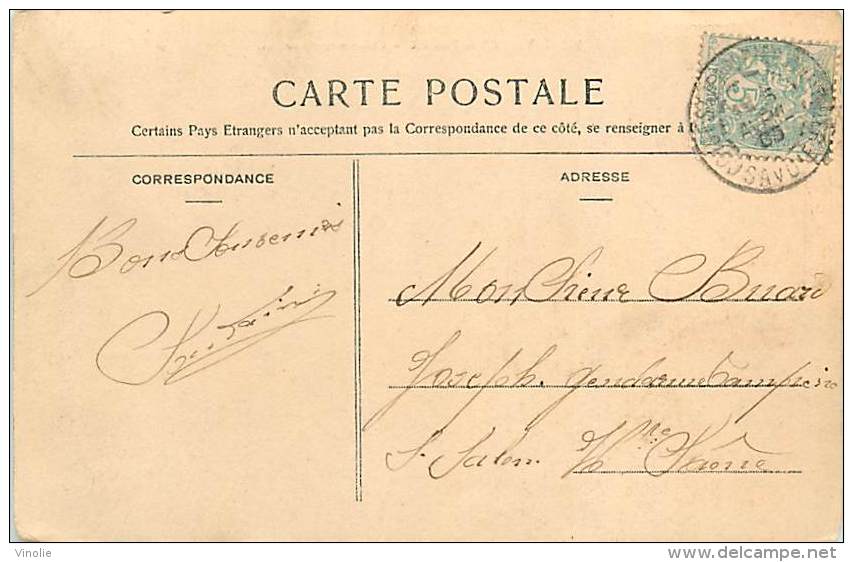 CARTE POSTALE
Certains Pays Etrangers n'acceptant pas la Correspondance de ce côté, se renseigner à
CORRESPONDANCE
ADRESSE
5
SAVOIE
Bons Souvenirs
Monsieur Buard
Joseph. Gendarme
S. Salon. Hte Saône
Vinolie
www.delcampe.net